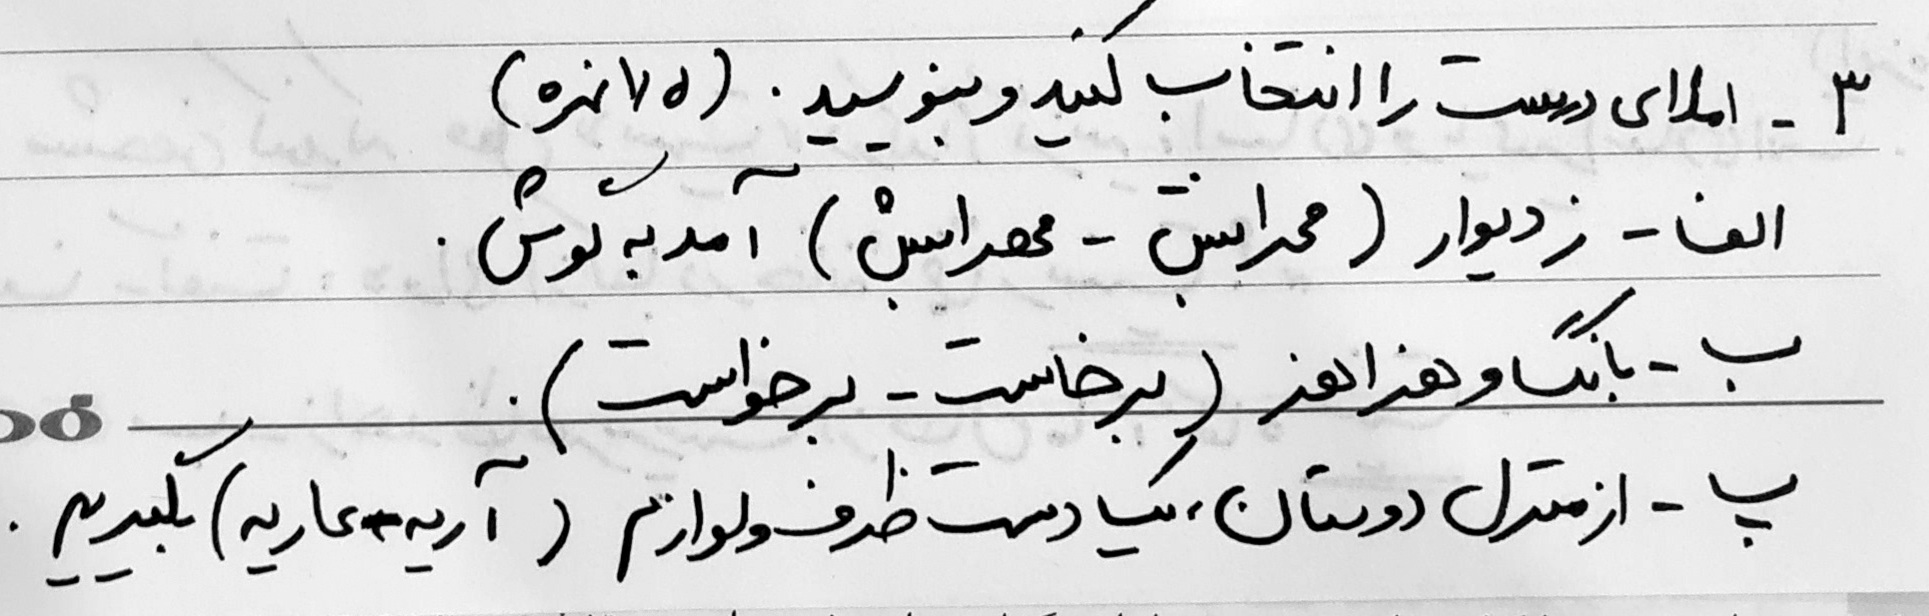 ۳ - املای درست را انتخاب کنید و بنویسید. (۷۵/ نمره)
الف - ز دیوار (محرابش - مهرابش) آمد به گوش.
ب - بانگ و هزاهز (برخاست - برخواست).
پ - از منزل دوستان، یک دست ظرف و لوازم (آریه - عاریه) بگیریم.